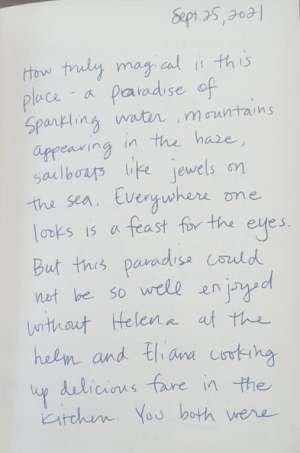 Sept. 25, 2021
How truly magical is this
place - a paradise of
Sparkling water, mountains
appearing in the haze,
sailboats like jewels on
the sea. Everywhere one
looks is a feast for the eyes.
But this paradise could
not be so well enjoyed
without Helena at the
helm and Eliana cooking
up delicious fare in the
kitchen. You both were